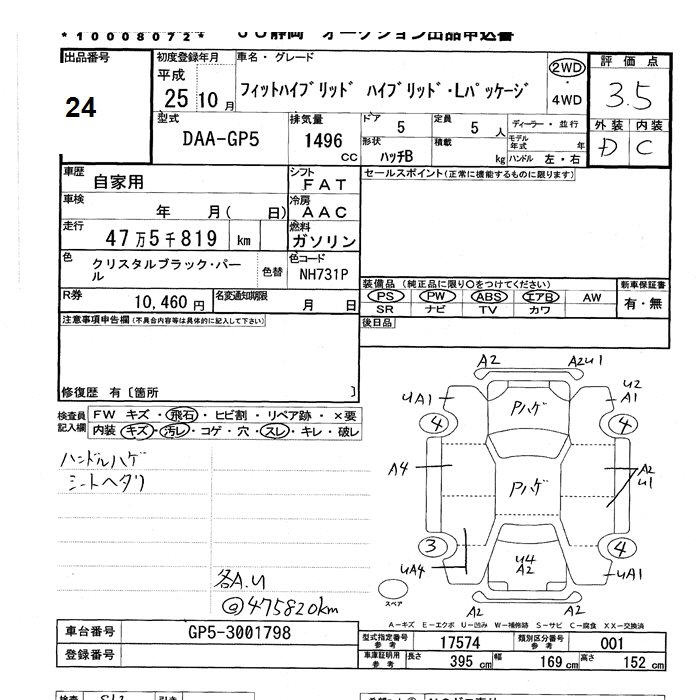 *10008072*
JU静岡 オークション出品申込書
出品番号
24
初度登録年月
平成
25 10 月
車名・グレード
フィットハイブリッド ハイブリッド・Lパッケージ
2WD
・
4WD
評価点
3.5
外装 内装
D C
型式
DAA-GP5
排気量
1496
CC
ドア
5
定員
5 人
ディーラー・並行
形状
ハッチB
積載
kg
モデル年式 年
ハンドル 左・右
車歴
自家用
シフト
FAT
セールスポイント(正常に機能するものに限ります。)
車検
年 月( 日)
冷房
AAC
走行
47万5千819 km
燃料
ガソリン
色
クリスタルブラック・パール
色替
色コード
NH731P
R券
10,460円
名変通知期限
月 日
装備品(純正品に限り○をつけてください)
PS PW ABS エアB AW
SR ナビ TV カワ
新車保証書
有・無
後日品
注意事項申告欄(不具合内容等は具体的に記入して下さい)
修復歴 有〔箇所 〕
検査員記入欄
FW キズ・飛石・ヒビ割・リペア跡・×要
内装 キズ・汚レ・コゲ・穴・スレ・キレ・破レ
ハンドルハゲ
シートヘタリ
各A.U
@475820km
A2 A2U1
UA1 U2 A1
4 Pハゲ 4
A4 Pハゲ A2 U1
3 4
UA4 U4 A2 UA1
A2 A2
スペア
A−キズ E−エクボ U−凹み W−補修跡 S−サビ C−腐食 XX−交換済
車台番号
GP5-3001798
登録番号
型式指定番号参考
17574
類別区分番号参考
001
車庫証明用参考
長さ 395 cm 幅 169 cm 高さ 152 cm